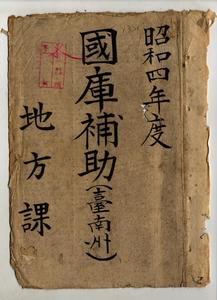 昭和四年度
國庫補助(臺南州)
地方課